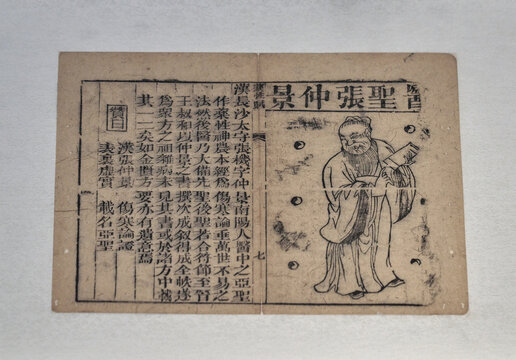 醫聖張仲景
七
漢長沙太守張機字仲景南陽人醫中之亞聖
作藥性神農本經為傷寒論垂萬世不易之
法然後醫乃大備先聖後聖若合符節至晉
王叔和以仲景之書撰次成敘得成全帙遂
為衆方之祖 病未見其書或於諸方中載
其一二矣如金匱方要亦有遺意焉
贊曰
漢張仲景 傷寒論證
表裏虛實 載名亞聖